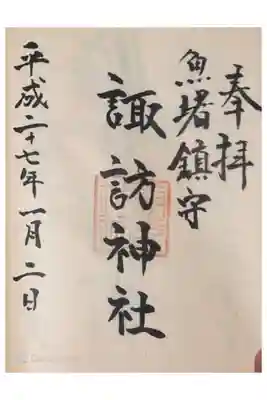 奉拝
魚堵鎮守
諏訪神社
平成二十七年一月二日